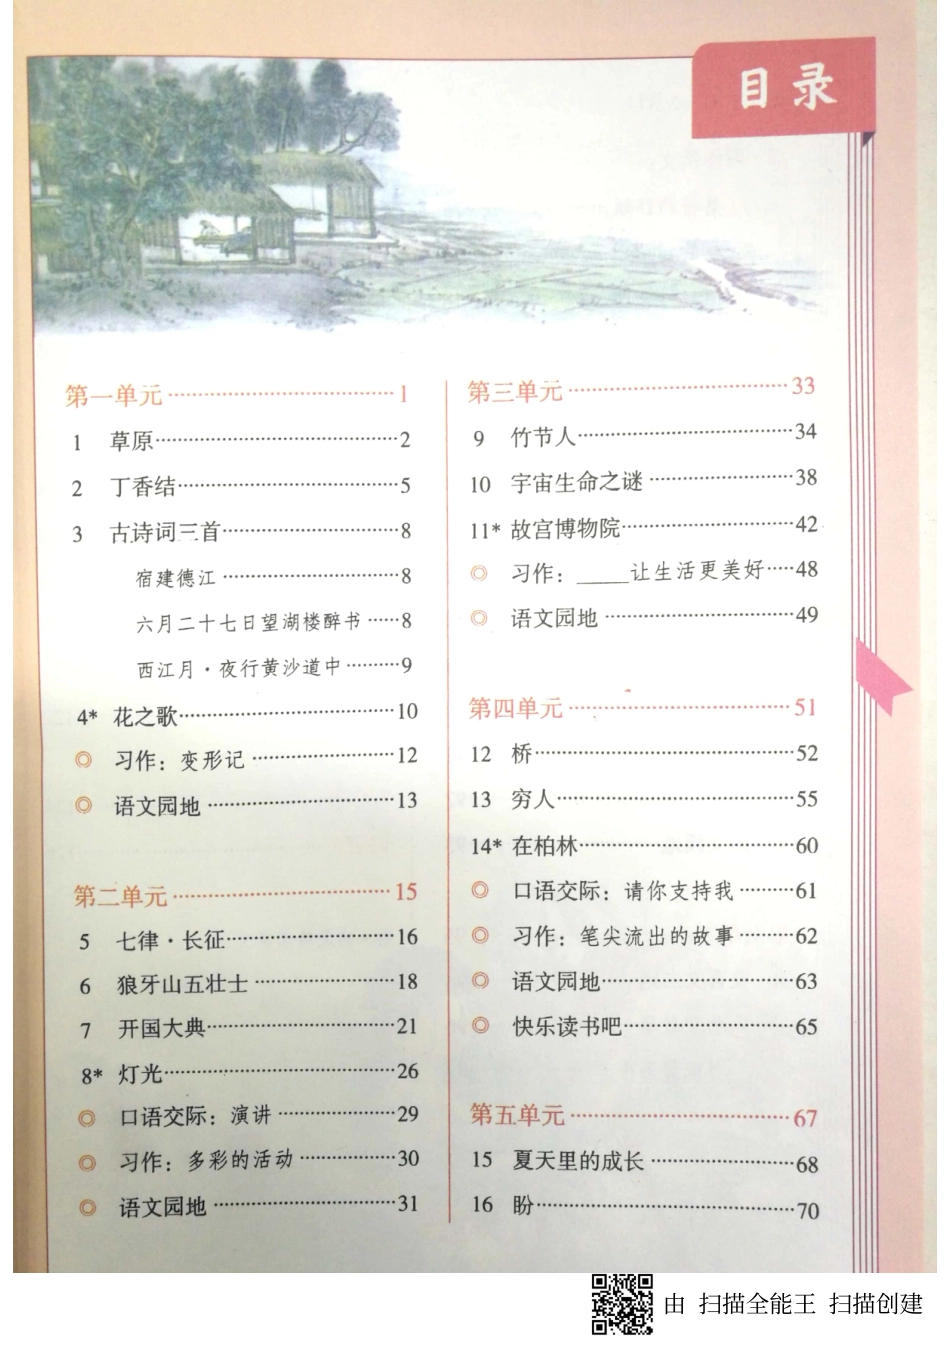 目录
第一单元……………………………1
1 草原……………………………2
2 丁香结……………………………5
3 古诗词三首……………………………8
宿建德江……………………………8
六月二十七日望湖楼醉书……8
西江月·夜行黄沙道中………9
4* 花之歌……………………………10
◎ 习作：变形记……………………12
◎ 语文园地……………………………13
第二单元……………………………15
5 七律·长征……………………………16
6 狼牙山五壮士……………………18
7 开国大典……………………………21
8* 灯光……………………………26
◎ 口语交际：演讲………………29
◎ 习作：多彩的活动……………30
◎ 语文园地……………………………31
第三单元……………………………33
9 竹节人……………………………34
10 宇宙生命之谜…………………38
11* 故宫博物院……………………42
◎ 习作：_____让生活更美好……48
◎ 语文园地……………………………49
第四单元……………………………51
12 桥……………………………52
13 穷人……………………………55
14* 在柏林……………………………60
◎ 口语交际：请你支持我………61
◎ 习作：笔尖流出的故事………62
◎ 语文园地……………………………63
◎ 快乐读书吧……………………65
第五单元……………………………67
15 夏天里的成长…………………68
16 盼……………………………70
由 扫描全能王 扫描创建